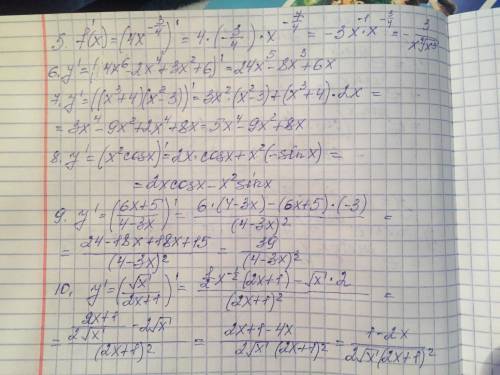 5. f'(x) = (4x^{-3/4})' = 4·(-3/4)·x^{-7/4} = -3x^{-1}·x^{-3/4} = -3/(x⁴√x³)
6. y' = (4x⁶-2x⁴+3x²+6)' = 24x⁵-8x³+6x
7. y' = ((x³+4)(x²-3))' = 3x²·(x²-3)+(x³+4)·2x =
= 3x⁴-9x²+2x⁴+8x = 5x⁴-9x²+8x
8. y' = (x²cosx)' = 2x·cosx+x²(-sinx) =
= 2xcosx-x²sinx
9. y' = ((6x+5)/(4-3x))' = (6·(4-3x)-(6x+5)·(-3))/(4-3x)² =
= (24-18x+18x+15)/(4-3x)² = 39/(4-3x)²
10. y' = (√x/(2x+1))' = (1/2 x^{-1/2}(2x+1)-√x·2)/(2x+1)² =
= ((2x+1)/(2√x) - 2√x)/(2x+1)² = (2x+1-4x)/(2√x(2x+1)²) = (1-2x)/(2√x(2x+1)²)